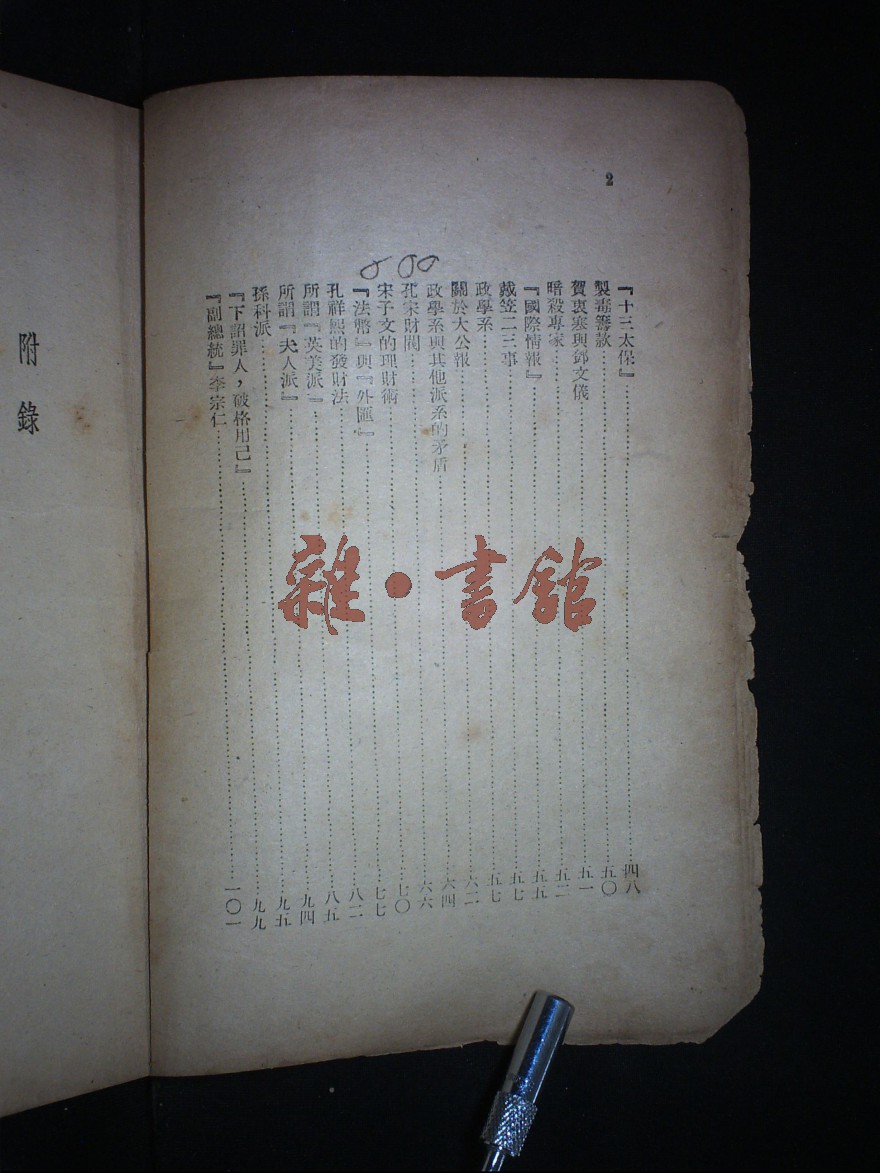 2
『十三太保』……四八
製毒籌款……五〇
賀衷寒與鄧文儀……五一
暗殺專家……五二
『國際情報』……五五
戴笠二三事……五七
政學系……五七
關於大公報……六二
政學系與其他派系的矛盾……六四
孔宋財閥……六六
宋子文的理財術……七〇
『法幣』與『外匯』……七七
孔祥熙的發財法……八二
所謂『英美派』……八五
所謂『夫人派』……九四
孫科派……九五
『下詔罪人，破格用己』……九九
『副總統』李宗仁……一〇一
附錄
雜·書館